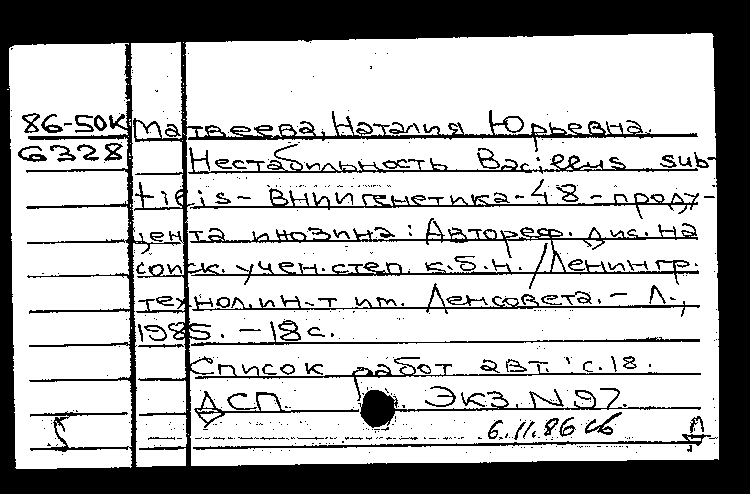 86-50К Матвеева, Наталия Юрьевна.
6328 Нестабильность Bacillus sub-
tilis - ВНИИгенетика-48 - проду-
цента инозина: Автореф. дис. на
соиск. учен. степ. к.б.н. / Ленингр.
технол. ин-т им. Ленсовета. - Л.,
1985. - 18 с.
Список работ авт.: с. 18.
ДСП. Экз. N 97.
6.11.86